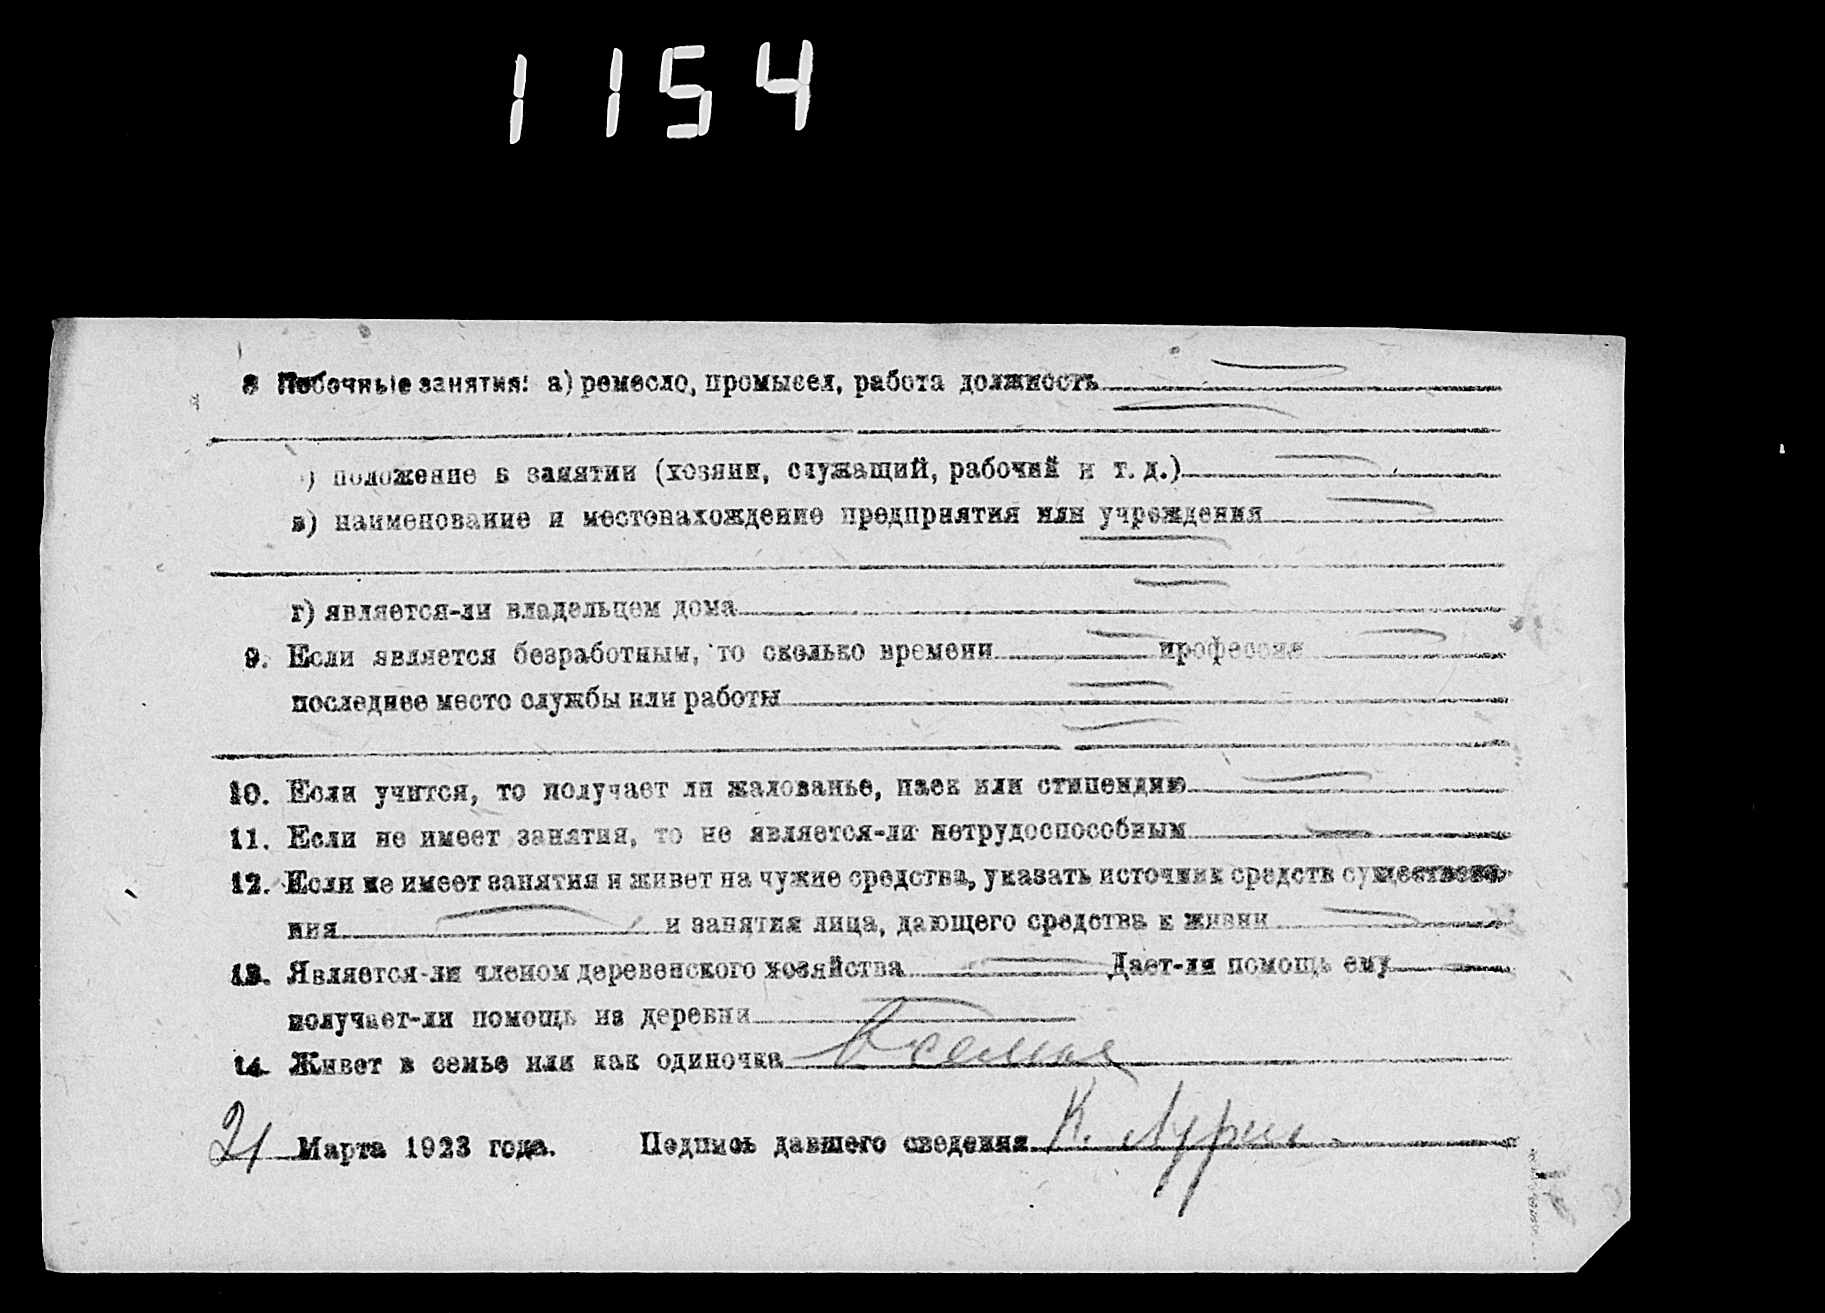 1154
8 Побочные занятия: а) ремесло, промысел, работа должность
) положение в занятии (хозяин, служащий, рабочий и т. д.)
в) наименование и местонахождение предприятия или учреждения
г) является-ли владельцем дома
9. Если является безработным, то сколько времени профессия
последнее место службы или работы
10. Если учится, то получает ли жалованье, паек или стипендию
11. Если не имеет занятия, то не является-ли нетрудоспособным
12. Если не имеет занятия и живет на чужие средства, указать источник средств существова-
ния и занятия лица, дающего средства к жизни
13. Является-ли членом деревенского хозяйства Дает-ли помощь ему
получает-ли помощь из деревни
14. Живет в семье или как одиночка в семье
21 Марта 1923 года. Подпись давшего сведения К. Лурии